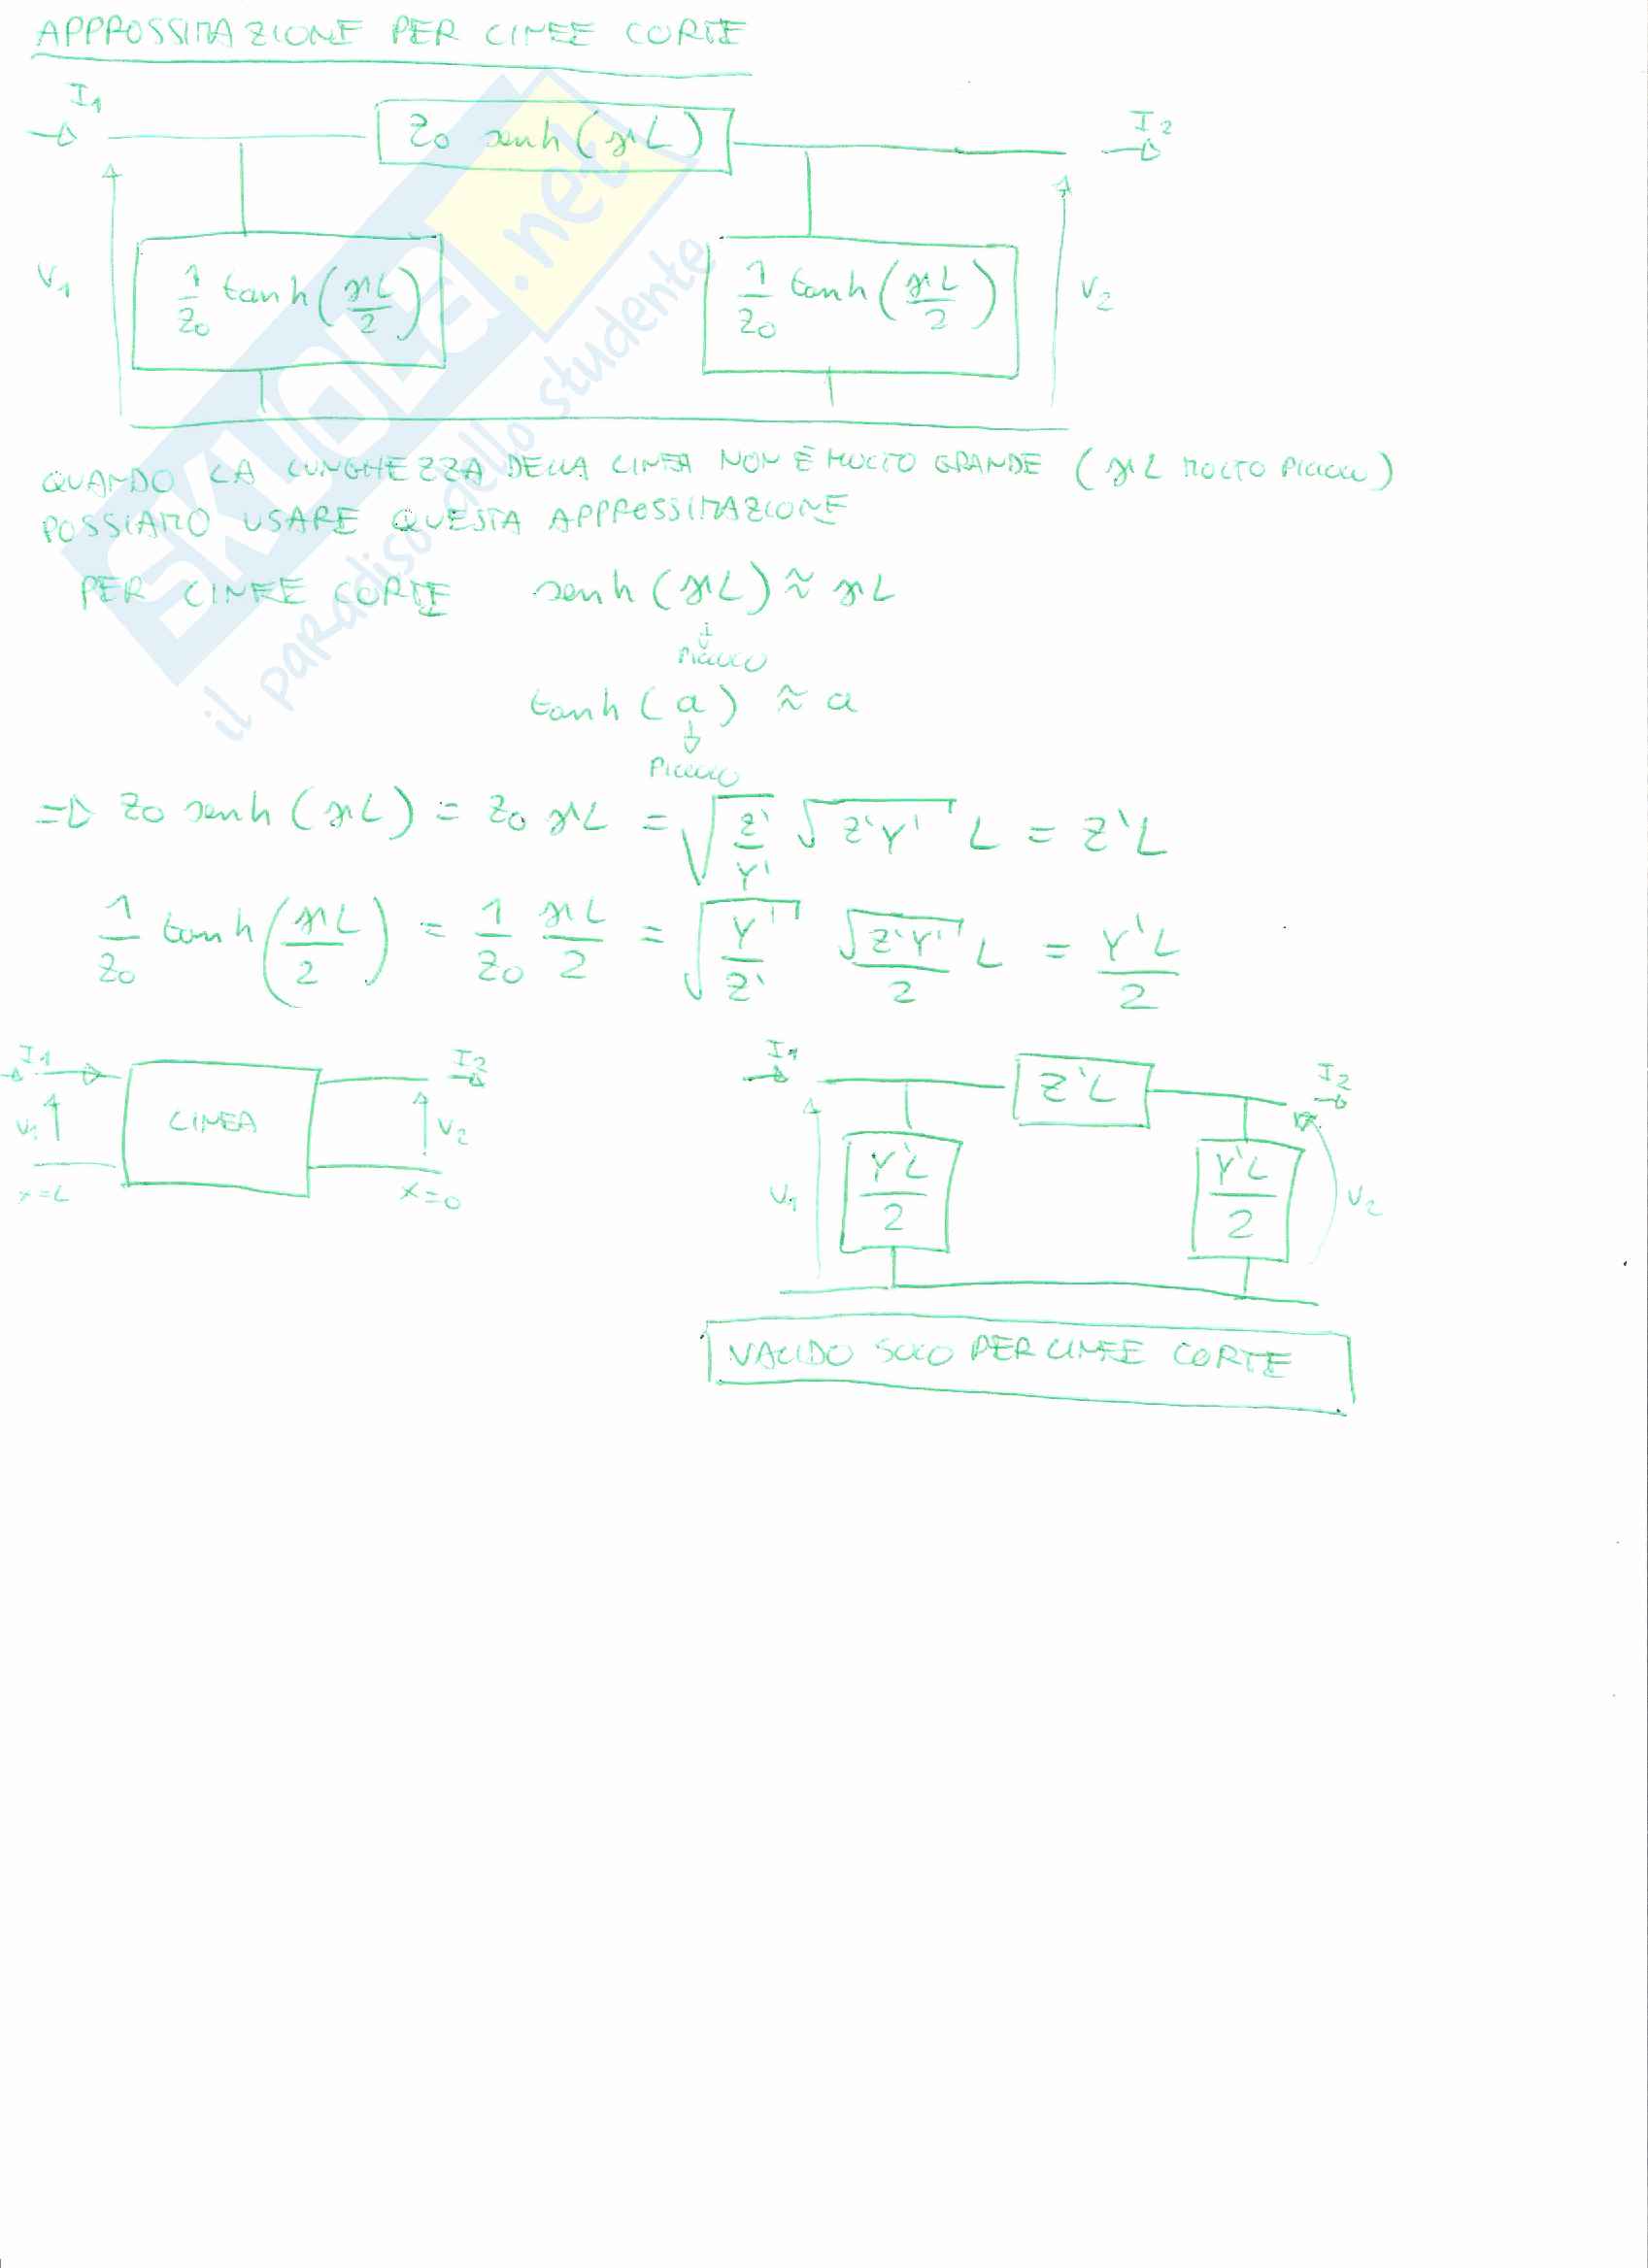 APPROSSIMAZIONE PER LINEE CORTE
I1
Z0 senh (γL)
I2
V1
1/Z0 tanh (γL/2)
1/Z0 tanh (γL/2)
V2
QUANDO LA LUNGHEZZA DELLA LINEA NON È MOLTO GRANDE (γL MOLTO PICCOLO)
POSSIAMO USARE QUESTA APPROSSIMAZIONE
PER LINEE CORTE senh (γL) ≈ γL
PICCOLO
tanh (a) ≈ a
PICCOLO
=> Z0 senh (γL) = Z0 γL = √(Z'/Y') √(Z'Y') L = Z'L
1/Z0 tanh (γL/2) = 1/Z0 γL/2 = √(Y'/Z') √(Z'Y')/2 L = Y'L/2
I1
I2
V1
LINEA
V2
x=L
x=0
I1
Z'L
I2
V1
Y'L/2
Y'L/2
V2
VALIDO SOLO PER LINEE CORTE
SKUOLA.net
il paradiso dello studente